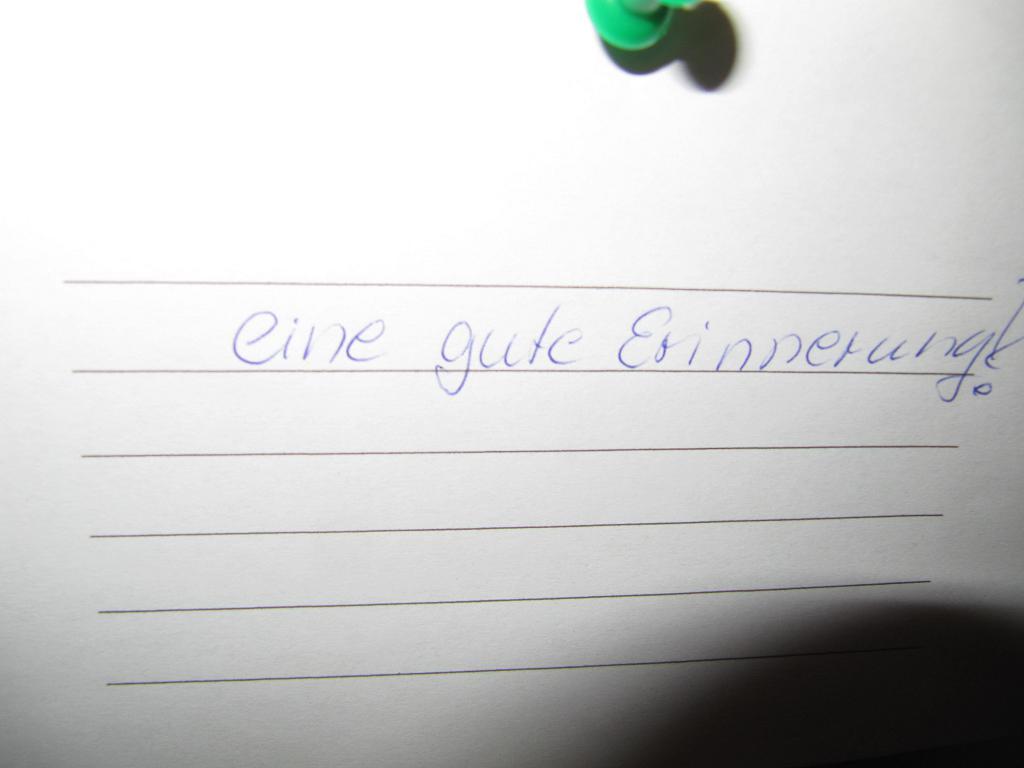 eine gute Erinnerung!